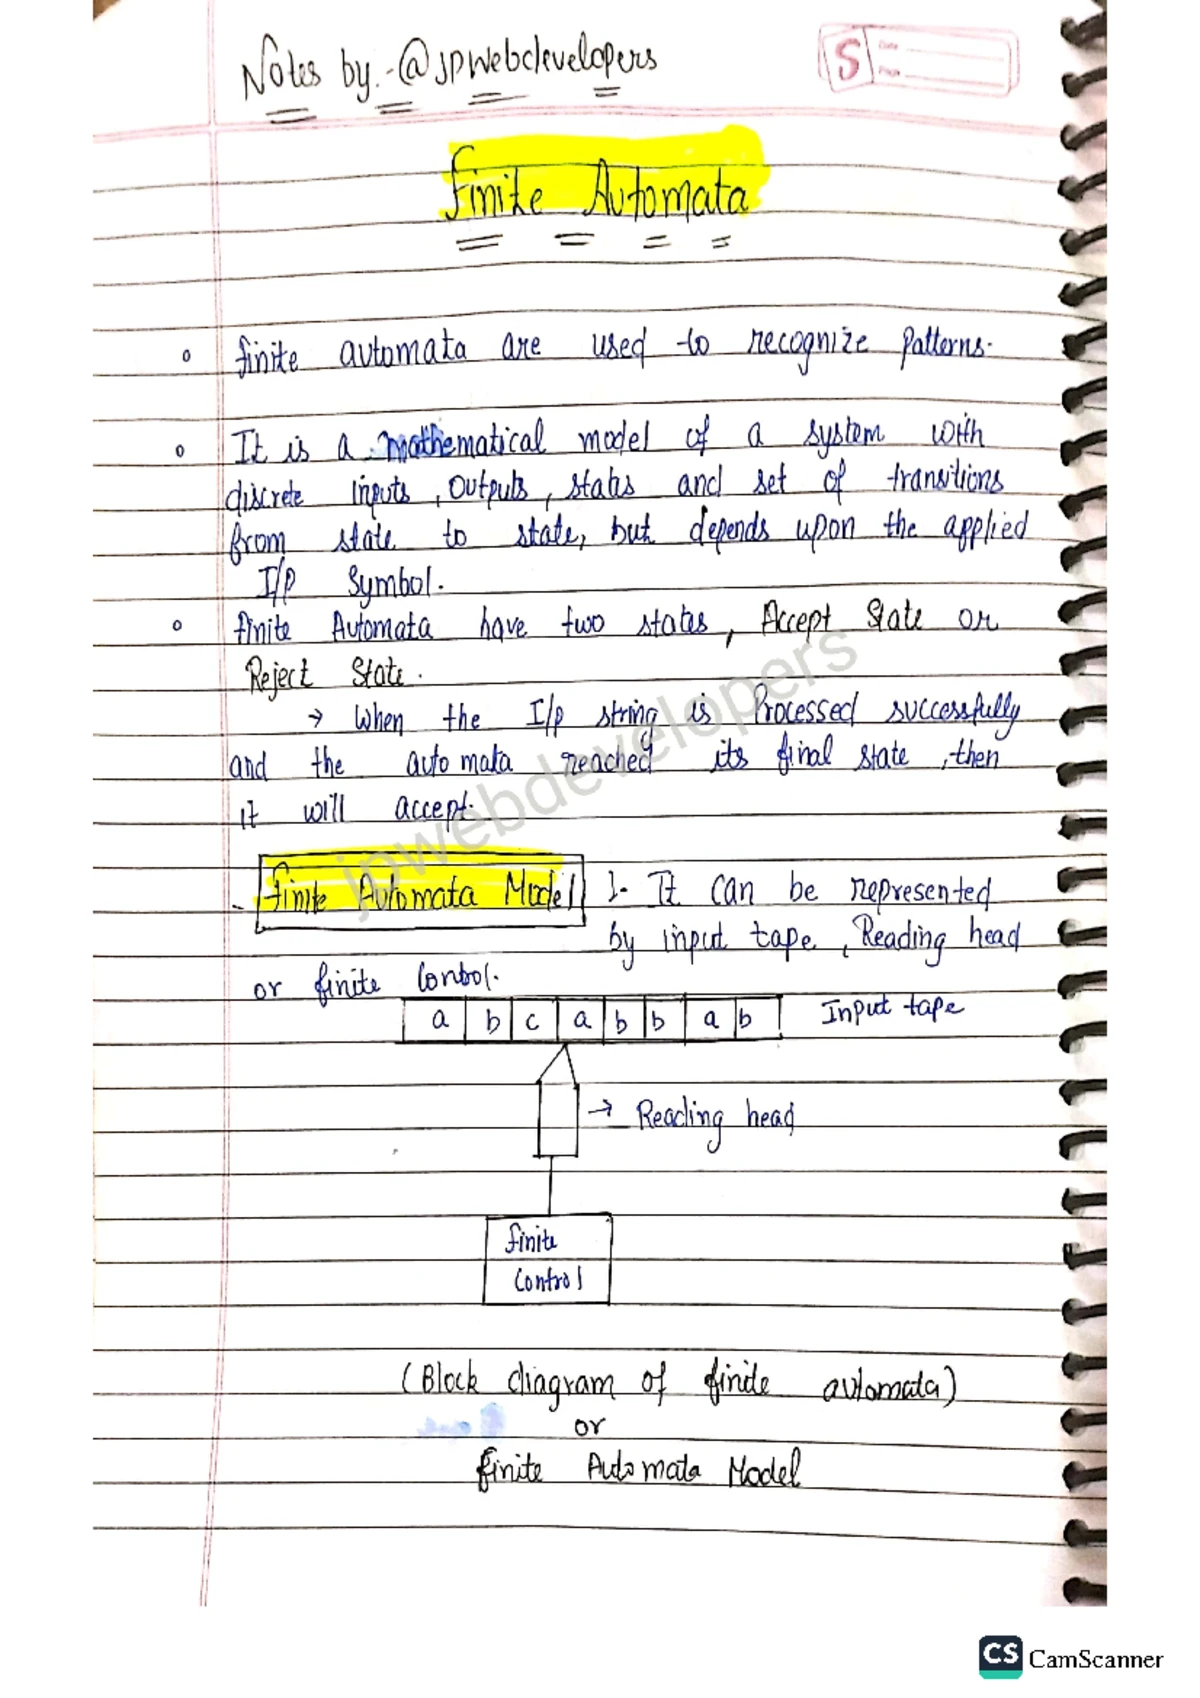 Notes by:-@jpwebdevelopers
S Date
Page
Finite Automata
finite automata are used to recognize Patterns.
It is a mathematical model of a system with
discrete inputs, outputs, states and set of transitions
from state to state, but depends upon the applied
I/P Symbol.
finite Automata have two states, Accept State or
Reject State.
→ When the I/p string is Processed successfully
and the automata reached its final state, then
it will accept.
jpwebdevelopers
finite Automata Model :- It can be represented
by input tape, Reading head
or finite Control.
a b c a b b a b Input tape
→ Reading head
finite
Control
(Block diagram of finite automata)
or
finite Automata Model
CS CamScanner